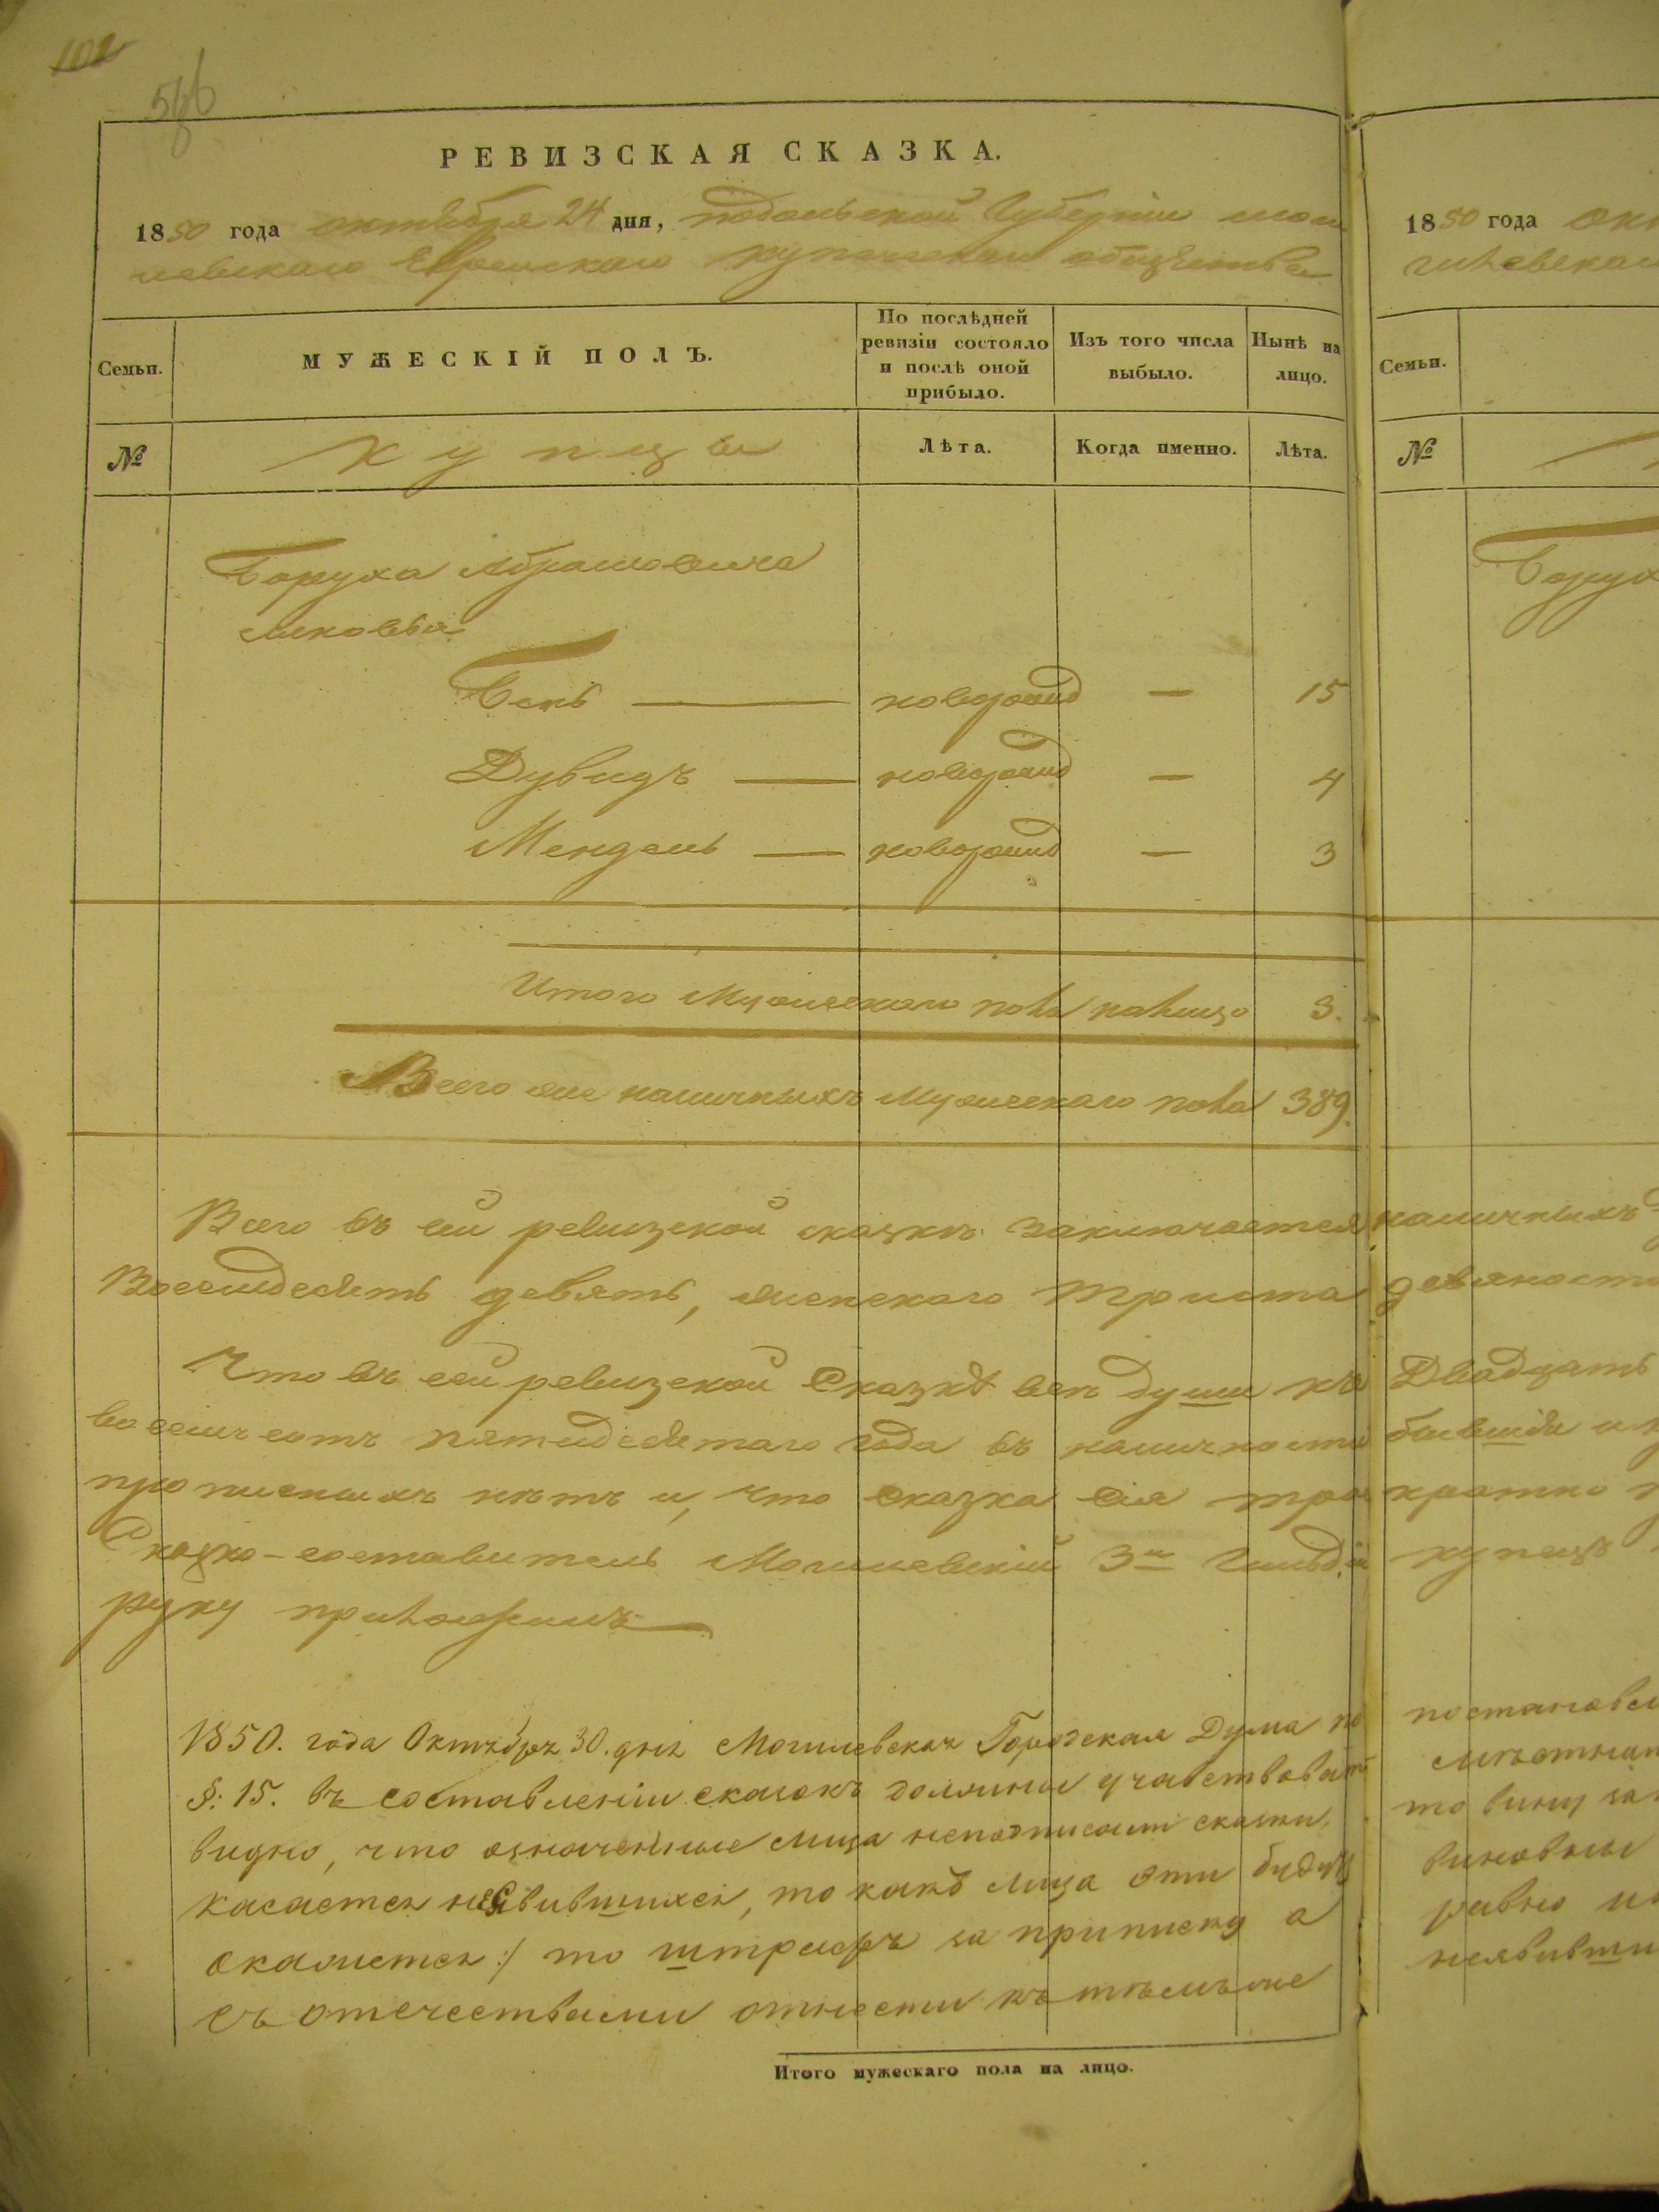 102
566
РЕВИЗСКАЯ СКАЗКА.
1850 года октября 24 дня, Подольской Губерніи моги
левскаго Еврейскаго купеческаго общества
Семьи.
МУЖЕСКІЙ ПОЛЪ.
По послѣдней ревизіи состояло и послѣ оной прибыло.
Изъ того числа выбыло.
Нынѣ на лицо.
№
Купцы
Лѣта.
Когда именно.
Лѣта.
Боруха Абрамовича
сыновья
Бенъ — новорожд — 15
Дувидъ — новорожд — 4
Мендель — новорожд — 3
Итого Мужескаго пола налицо 3.
Всего же наличныхъ Мужескаго пола 389.
Всего въ сей ревизской сказкѣ заключается наличныхъ
Восемдесятъ девять, женскаго Триста девяносто
Что въ сей ревизской Сказкѣ всѣ души къ Двадцать
восемъ сотъ пятидесятаго года въ наличности бывшія и
прописныхъ нѣтъ и, что сказка сія трое кратно
Сказко-составитель Могилевскій 3й Гильдіи купецъ
руку приложилъ
1850. года Октября 30. дня Могилевская Городская Дума по постановл
§: 15. въ составленіи сказокъ должны участвовать
видно, что означенные лица неподписали сказки, то вину
касается неявившихся, то какъ лица эти будутъ виновны
окажется :/ то штрафъ за приписку а равно
съ отечествами отнести къ тѣмъ же неявивши
Итого мужескаго пола на лицо.
1850 года Окт
гилевскаго
Семьи.
№
Борух